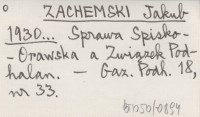 ZACHEMSKI Jakub
1930... Sprawa Spisko-
-Orawska a Związek Pod-
halan. — Gaz. Podh. 18,
nr 33.